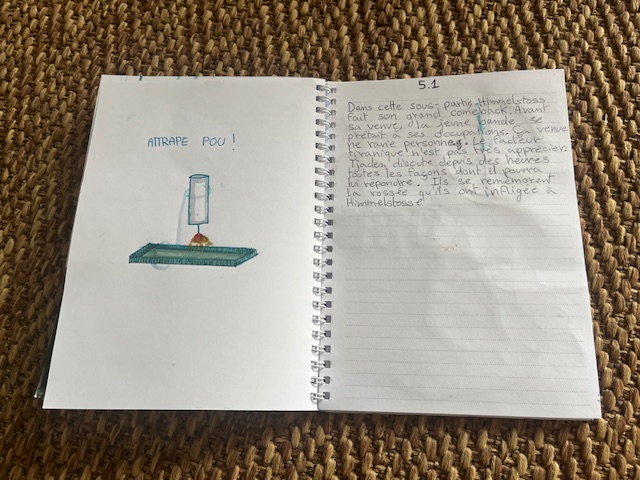 ATTRAPE POU !
5.1
Dans cette sous-partie Himmelstoss
fait son grand comeback. Avant
sa venue, la jeune bande se
prêtait à ses occupations. Ça venue
ne ravie personne. Le facteur
tiranique n'est pas très apprécier.
Tjaden discute depuis des heures
toutes les façons dont il pourra
lui répondre. Ils se remémorent
la rossée qu'ils ont infligée à
Himmelstoss